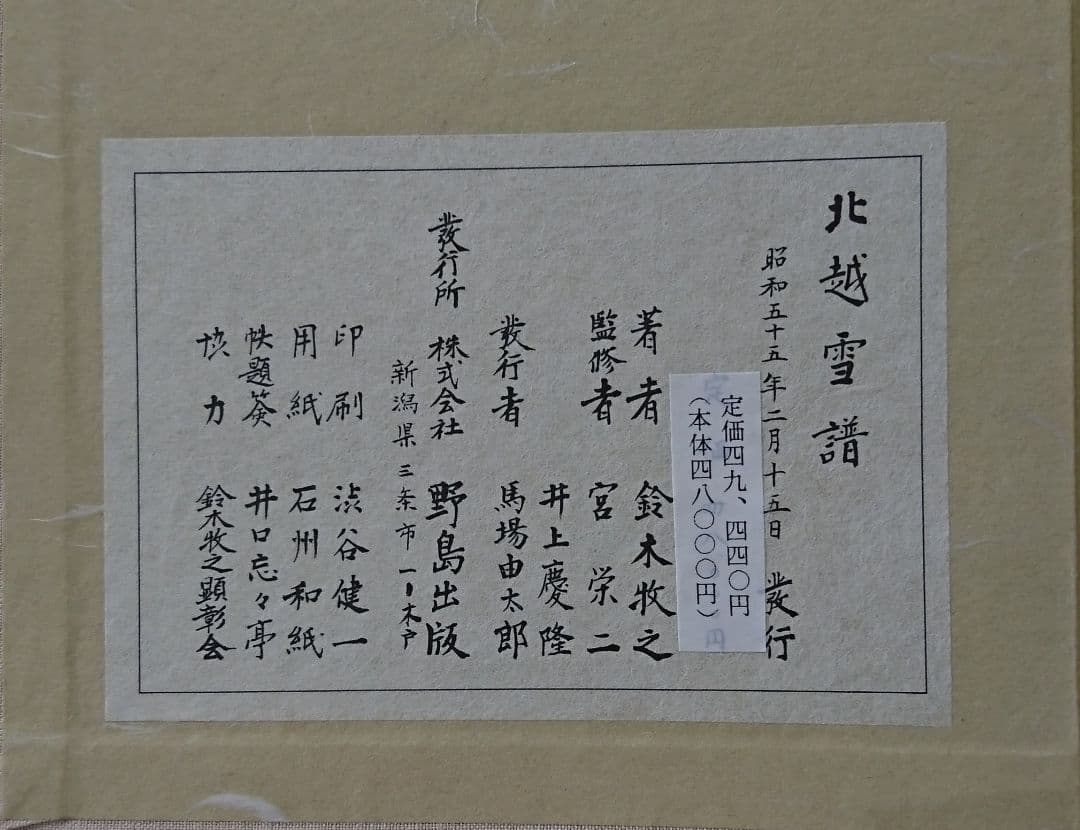 北越雪譜
昭和五十五年二月十五日 發行
定価四九、四四〇円
(本体四八〇〇〇円)
円
著者 鈴木牧之
監修者 宮栄二
井上慶隆
發行者 馬場由太郎
發行所 株式会社 野島出版
新潟県三条市一ノ木戸
印刷 渋谷健一
用紙 石州和紙
帙題簽 井口忘々亭
協力 鈴木牧之顕彰会